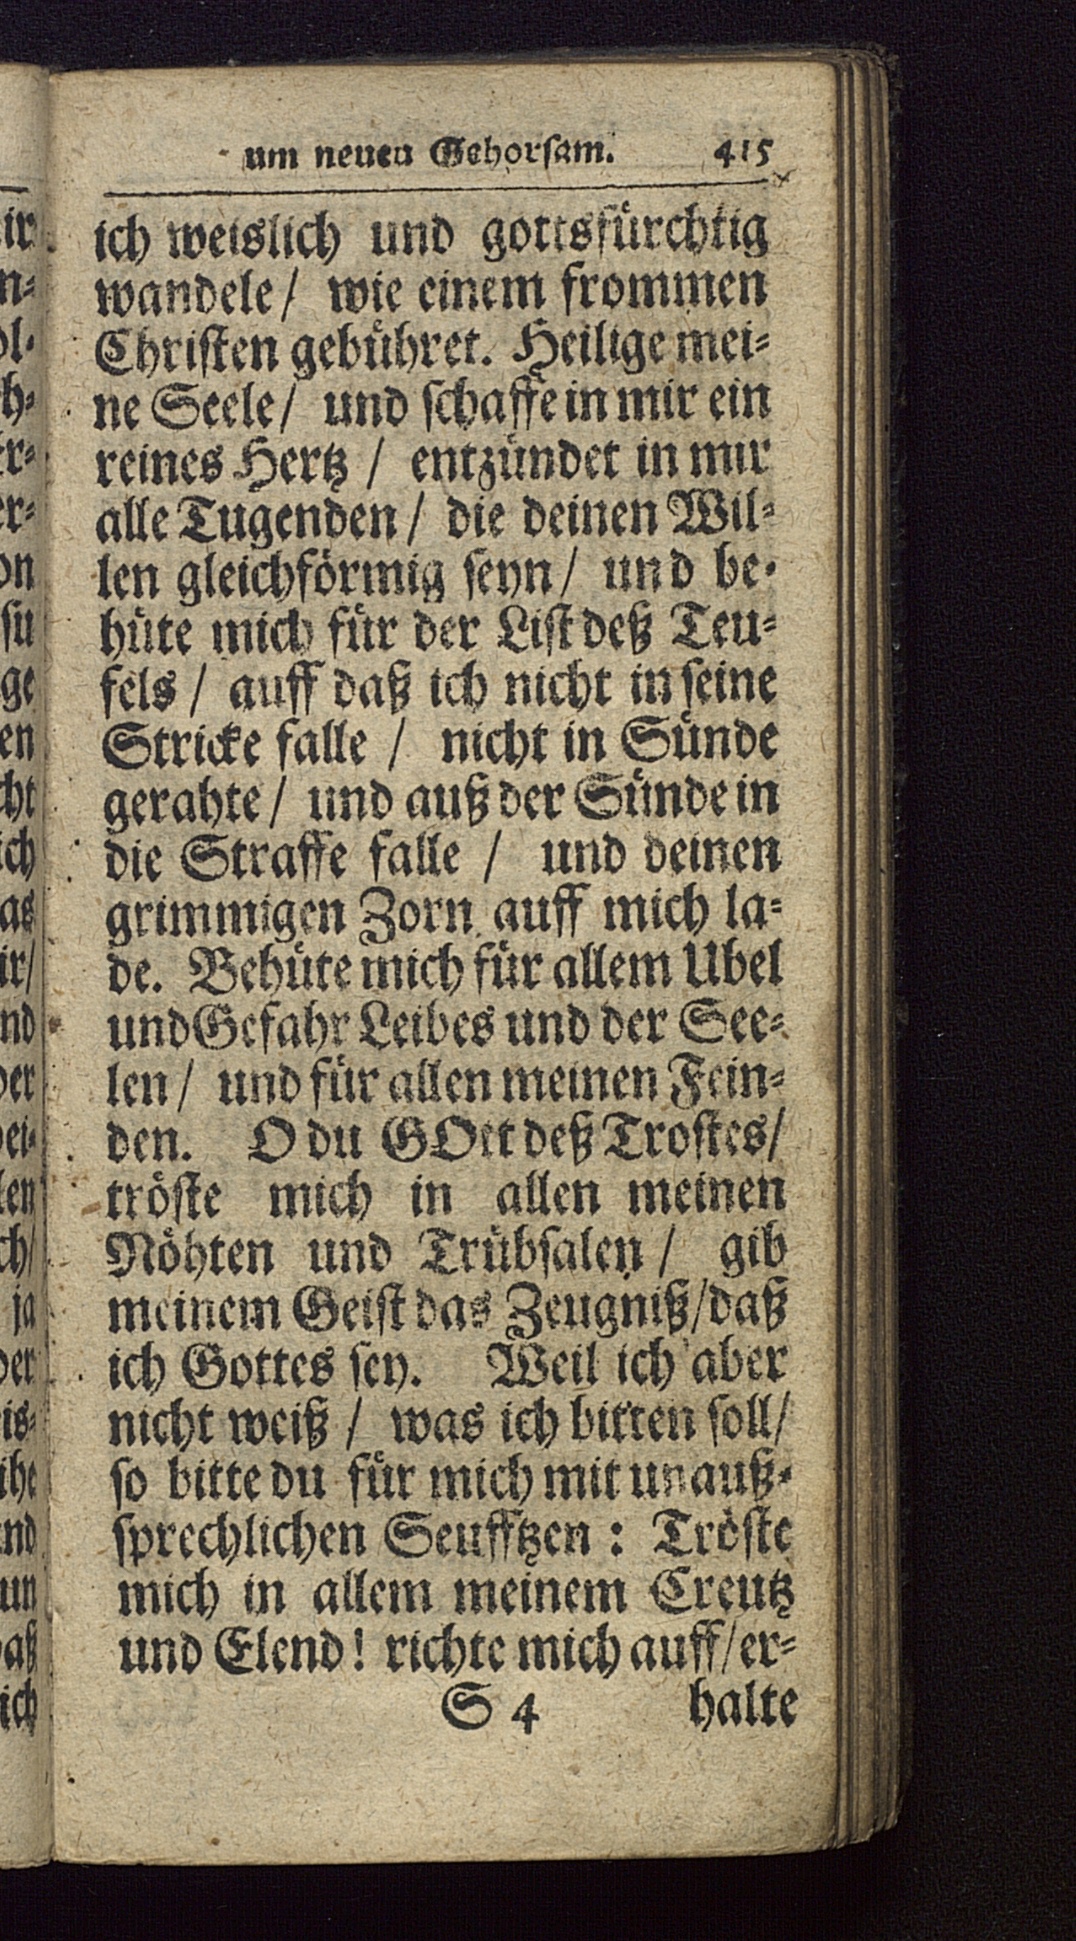 um neuen Gehorsam. 415
ich weislich und gottsfürchtig
wandele/ wie einem frommen
Christen gebühret. Heilige mei-
ne Seele/ und schaffe in mir ein
reines Hertz / entzündet in mir
alle Tugenden/ die deinen Wil-
len gleichförmig seyn/ und be-
hüte mich für der List deß Teu-
fels / auff daß ich nicht in seine
Stricke falle / nicht in Sünde
gerahte/ und auß der Sünde in
die Straffe falle / und deinen
grimmigen Zorn auff mich la-
de. Behüte mich für allem Ubel
und Gefahr Leibes und der See-
len/ und für allen meinen Fein-
den. O du GOtt deß Trostes/
tröste mich in allen meinen
Nöhten und Trübsalen/ gib
meinem Geist das Zeugniß/daß
ich Gottes sey. Weil ich aber
nicht weiß / was ich bitten soll/
so bitte du für mich mit unauß-
sprechlichen Seufftzen : Tröste
mich in allem meinem Creutz
und Elend! richte mich auff/er-
S 4 halte